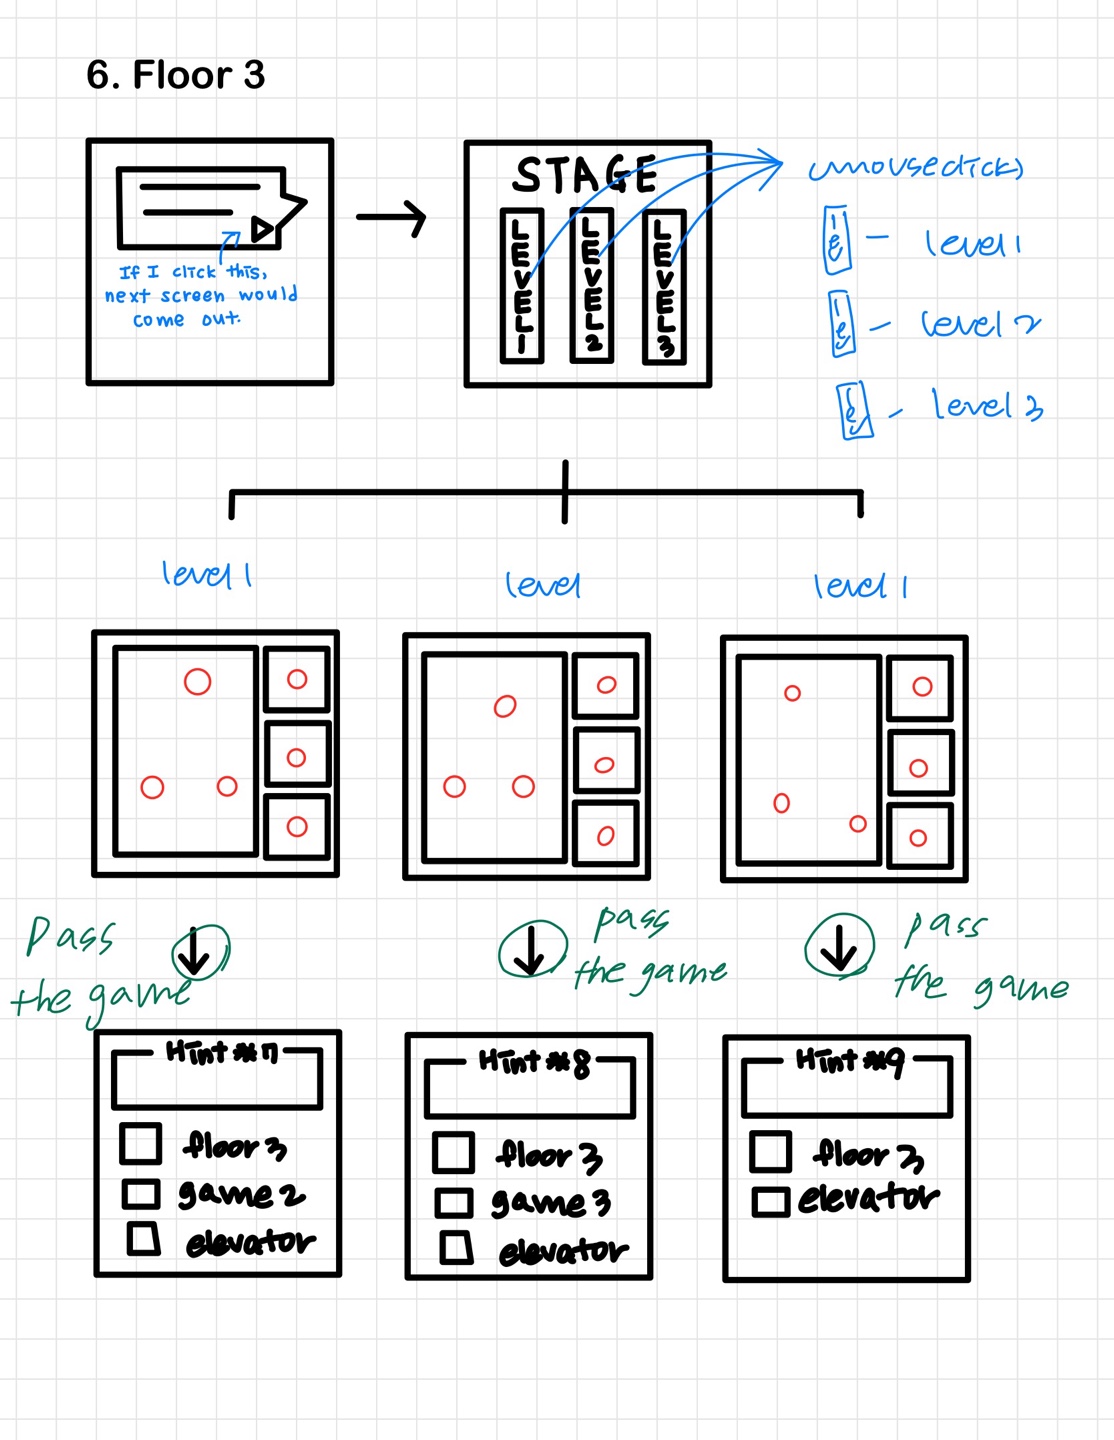 6. Floor 3
If I click this,
next screen would
come out.
STAGE
LEVEL1
LEVEL2
LEVEL3
(mouseclick)
level 1
level 2
level 3
level 1
level
level 1
Pass
the game
pass
the game
pass
the game
Hint #7
floor 3
game 2
elevator
Hint #8
floor 3
game 3
elevator
Hint #9
floor 3
elevator